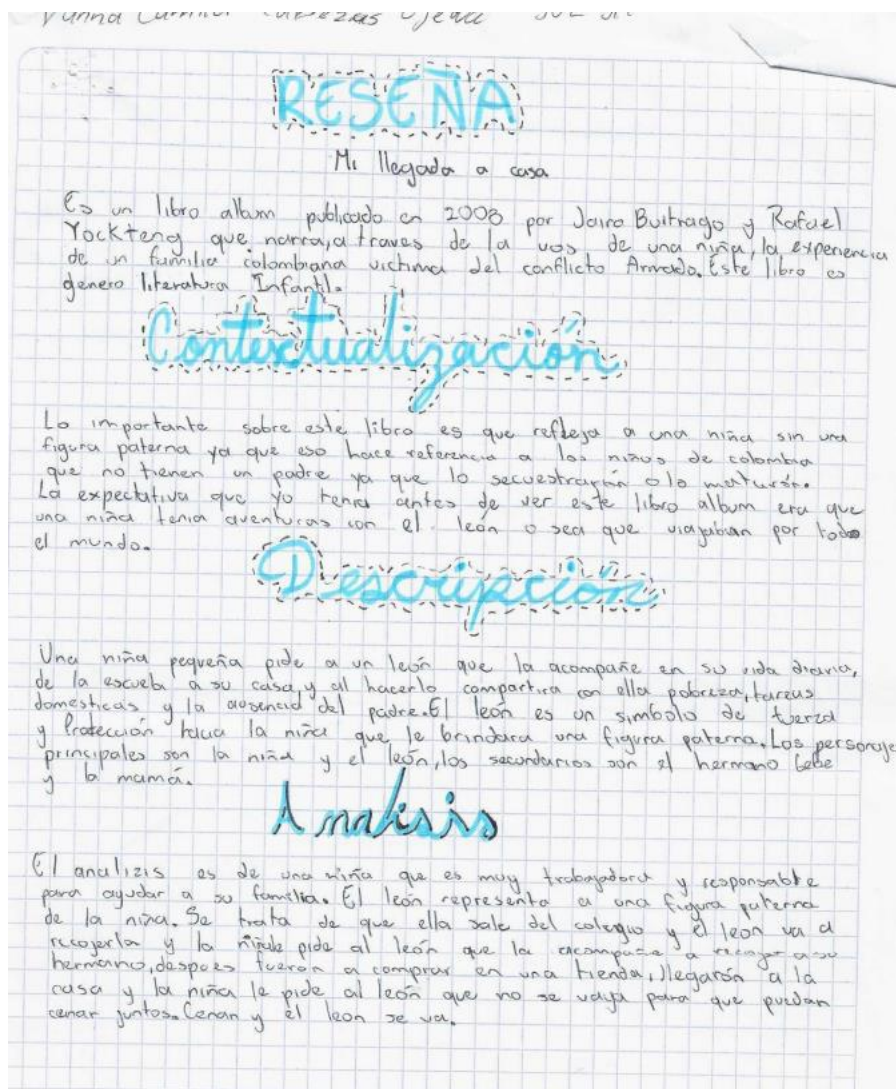 RESEÑA
Mi llegada a casa
Es un libro album publicado en 2008 por Jairo Buitrago y Rafael
Yockteng que narra, a traves de la vos de una niña, la experiencia
de un familia colombiana victima del conflicto Armado. Este libro es
genero literatura Infantil.
Contextualización
Lo importante sobre este libro es que refleja a una niña sin una
figura paterna ya que eso hace referencia a los niños de colombia
que no tienen un padre ya que lo secuestrarón o lo maturón.
La expectativa que yo tenia antes de ver este libro album era que
una niña tenia aventuras con el león o sea que viajaban por todo
el mundo.
Descripción
Una niña pequeña pide a un león que la acompañe en su vida diaria,
de la escuela a su casa, y al hacerlo compartira con ella pobreza, tareas
domesticas y la ausencia del padre. El león es un simbolo de fuerza
y Protección hacia la niña que le brindara una figura paterna. Los personaje
principales son la niña y el león, los secundarios son el hermano bebe
y la mamá.
Analisis
El analizis es de una niña que es muy trabajadora y responsable
para ayudar a su familia. El león representa a una figura paterna
de la niña. Se trata de que ella sale del colegio y el leon va a
recojerla y la niña le pide al león que la acompañe a recoger a su
hermano, despoes fueron a comprar en una tienda, llegarón a la
casa y la niña le pide al león que no se vaya para que puedan
cenar juntos. Cenan y el leon se va.